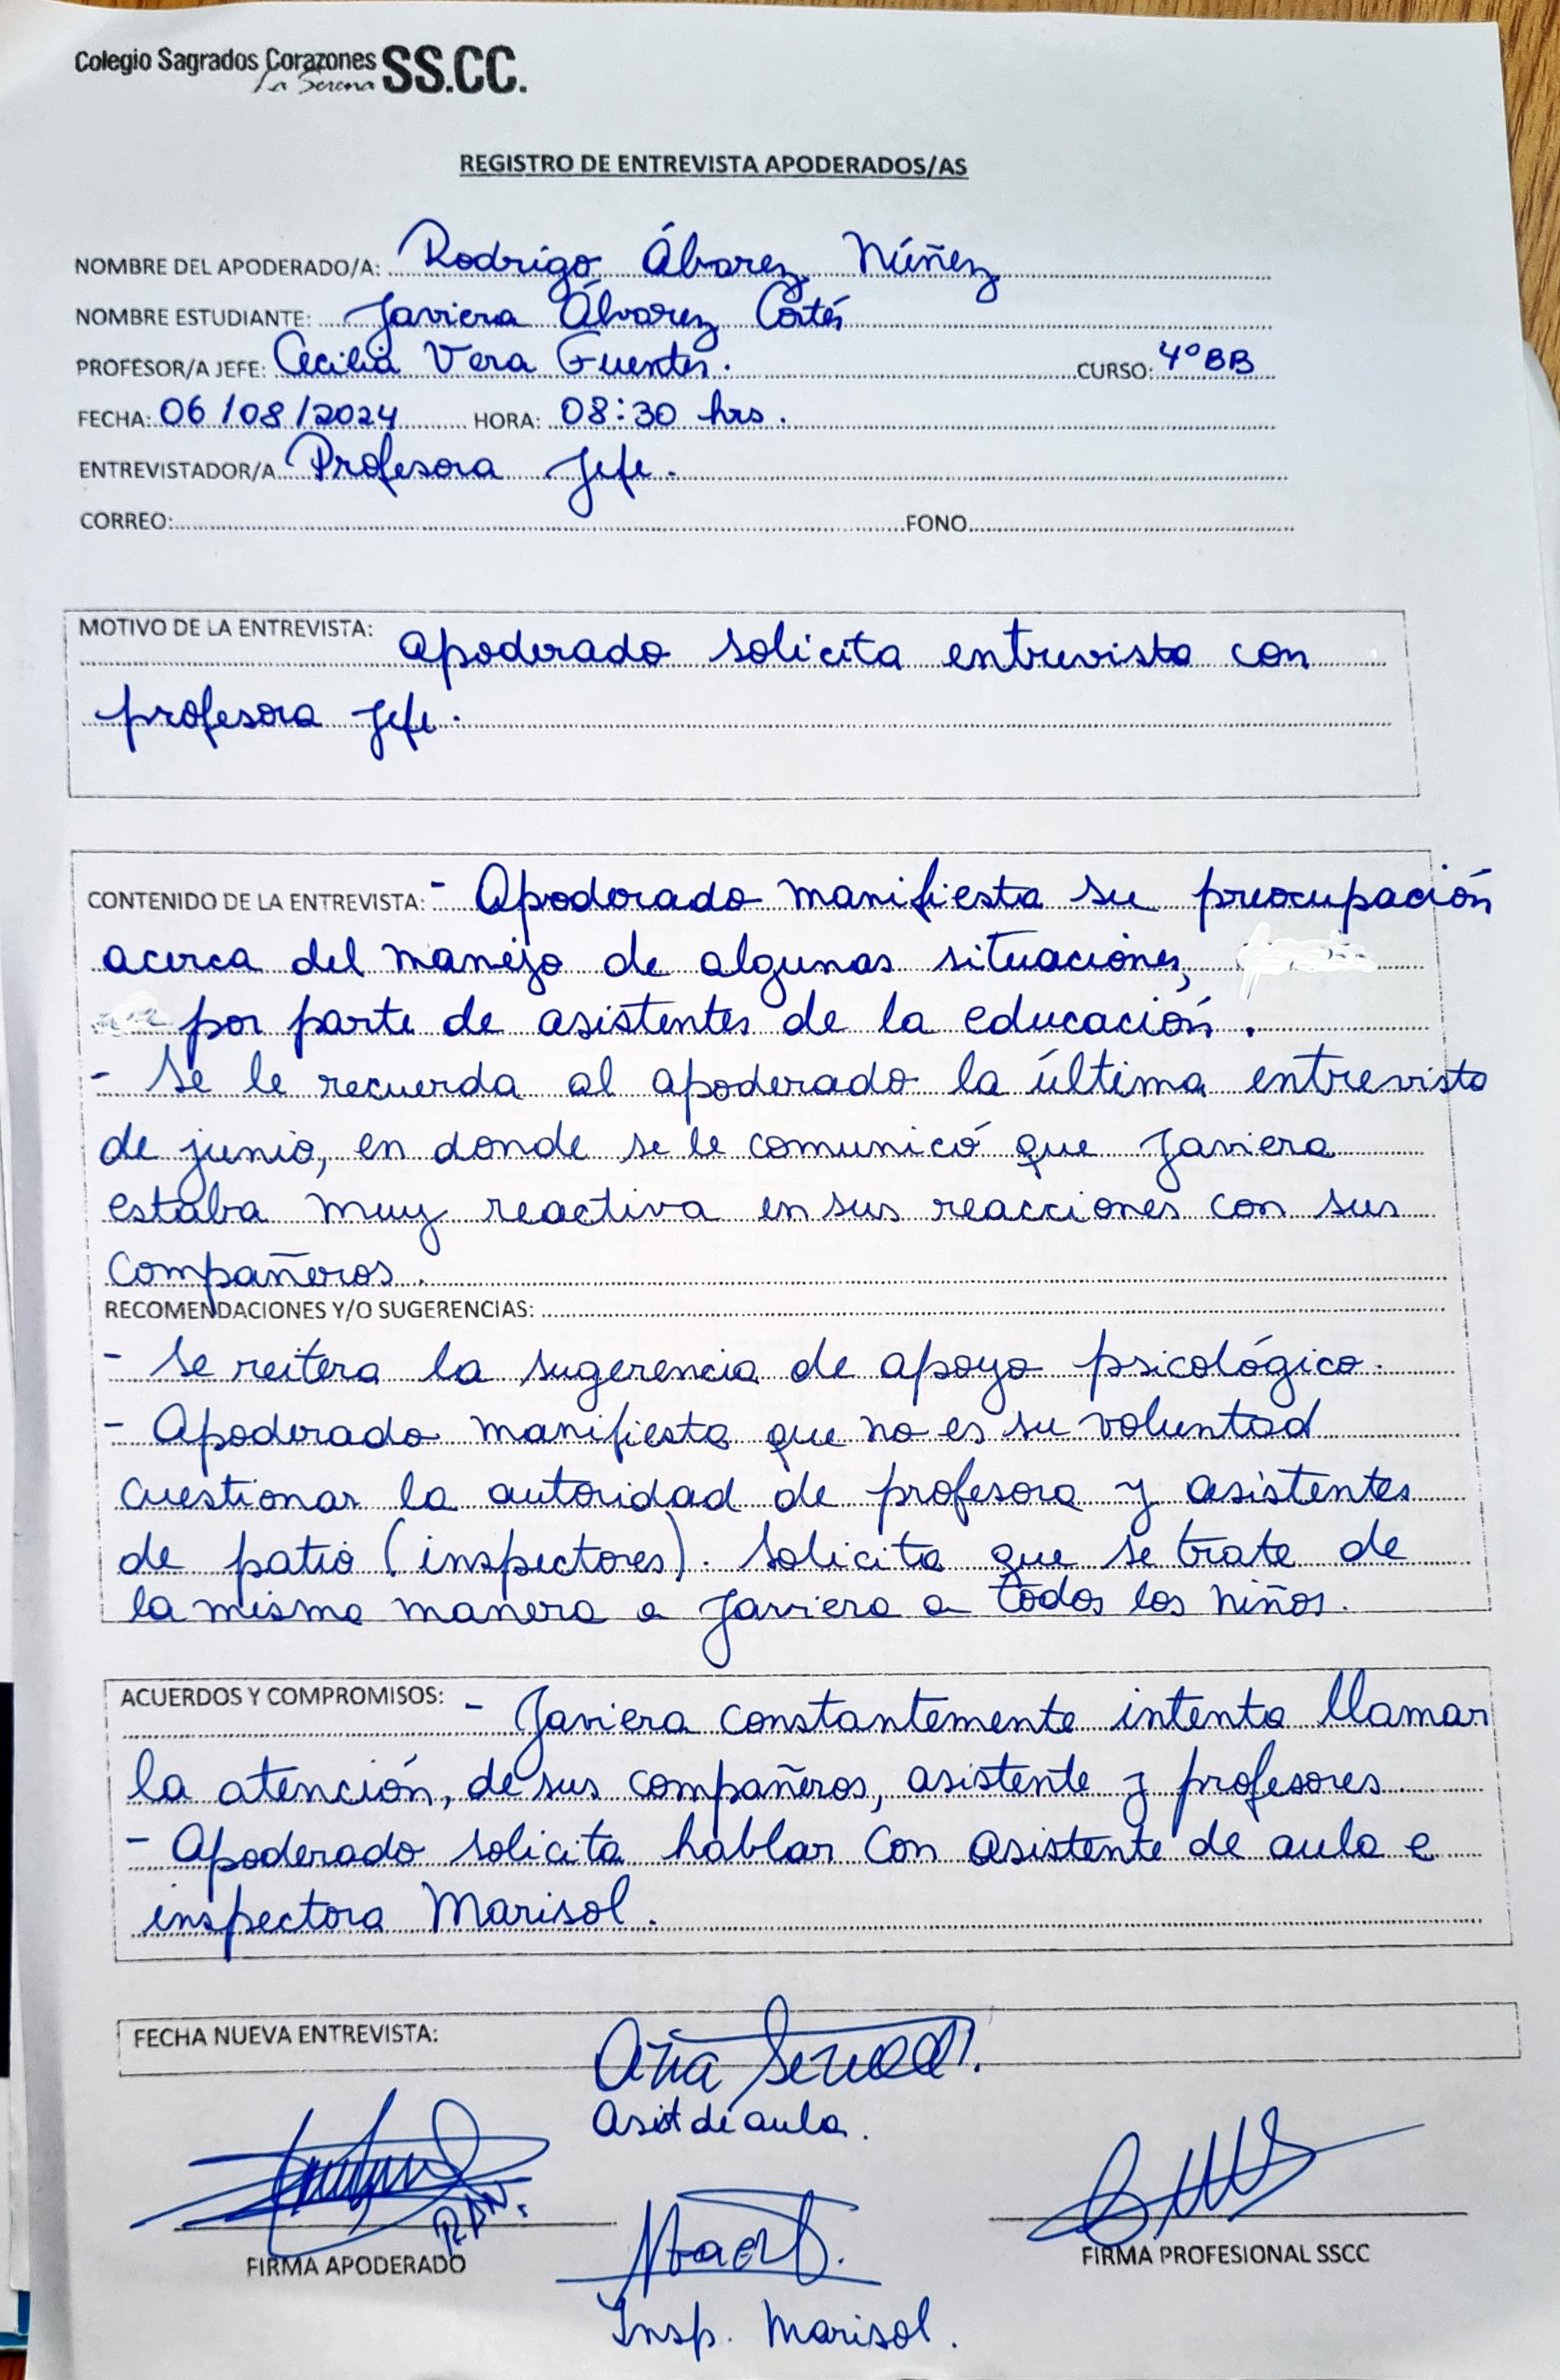 Colegio Sagrados Corazones SS.CC.
La Serena
REGISTRO DE ENTREVISTA APODERADOS/AS
NOMBRE DEL APODERADO/A: Rodrigo Álvarez Núñez
NOMBRE ESTUDIANTE: Javiera Álvarez Cortés
PROFESOR/A JEFE: Cecilia Vera Fuentes. CURSO: 4° BB
FECHA: 06/08/2024 HORA: 08:30 hrs.
ENTREVISTADOR/A Profesora Jefe.
CORREO: FONO
MOTIVO DE LA ENTREVISTA: Apoderado solicita entrevista con
profesora Jefe.
CONTENIDO DE LA ENTREVISTA: - Apoderado manifiesta su preocupación
acerca del manejo de algunas situaciones,
por parte de asistentes de la educación.
- Se le recuerda al apoderado la última entrevista
de junio, en donde se le comunicó que Javiera
estaba muy reactiva en sus reacciones con sus
compañeros.
RECOMENDACIONES Y/O SUGERENCIAS:
- Se reitera la sugerencia de apoyo psicológico.
- Apoderado manifiesta que no es su voluntad
cuestionar la autoridad de profesora y asistentes
de patio (inspectores). Solicita que se trate de
la misma manera a Javiera a todos los niños.
ACUERDOS Y COMPROMISOS: - Javiera constantemente intenta llamar
la atención, de sus compañeros, asistente y profesores
- Apoderado solicita hablar con asistente de aula e
inspectora Marisol.
FECHA NUEVA ENTREVISTA:
Asit de aula.
RAN.
FIRMA APODERADO
FIRMA PROFESIONAL SSCC
Insp. Marisol.